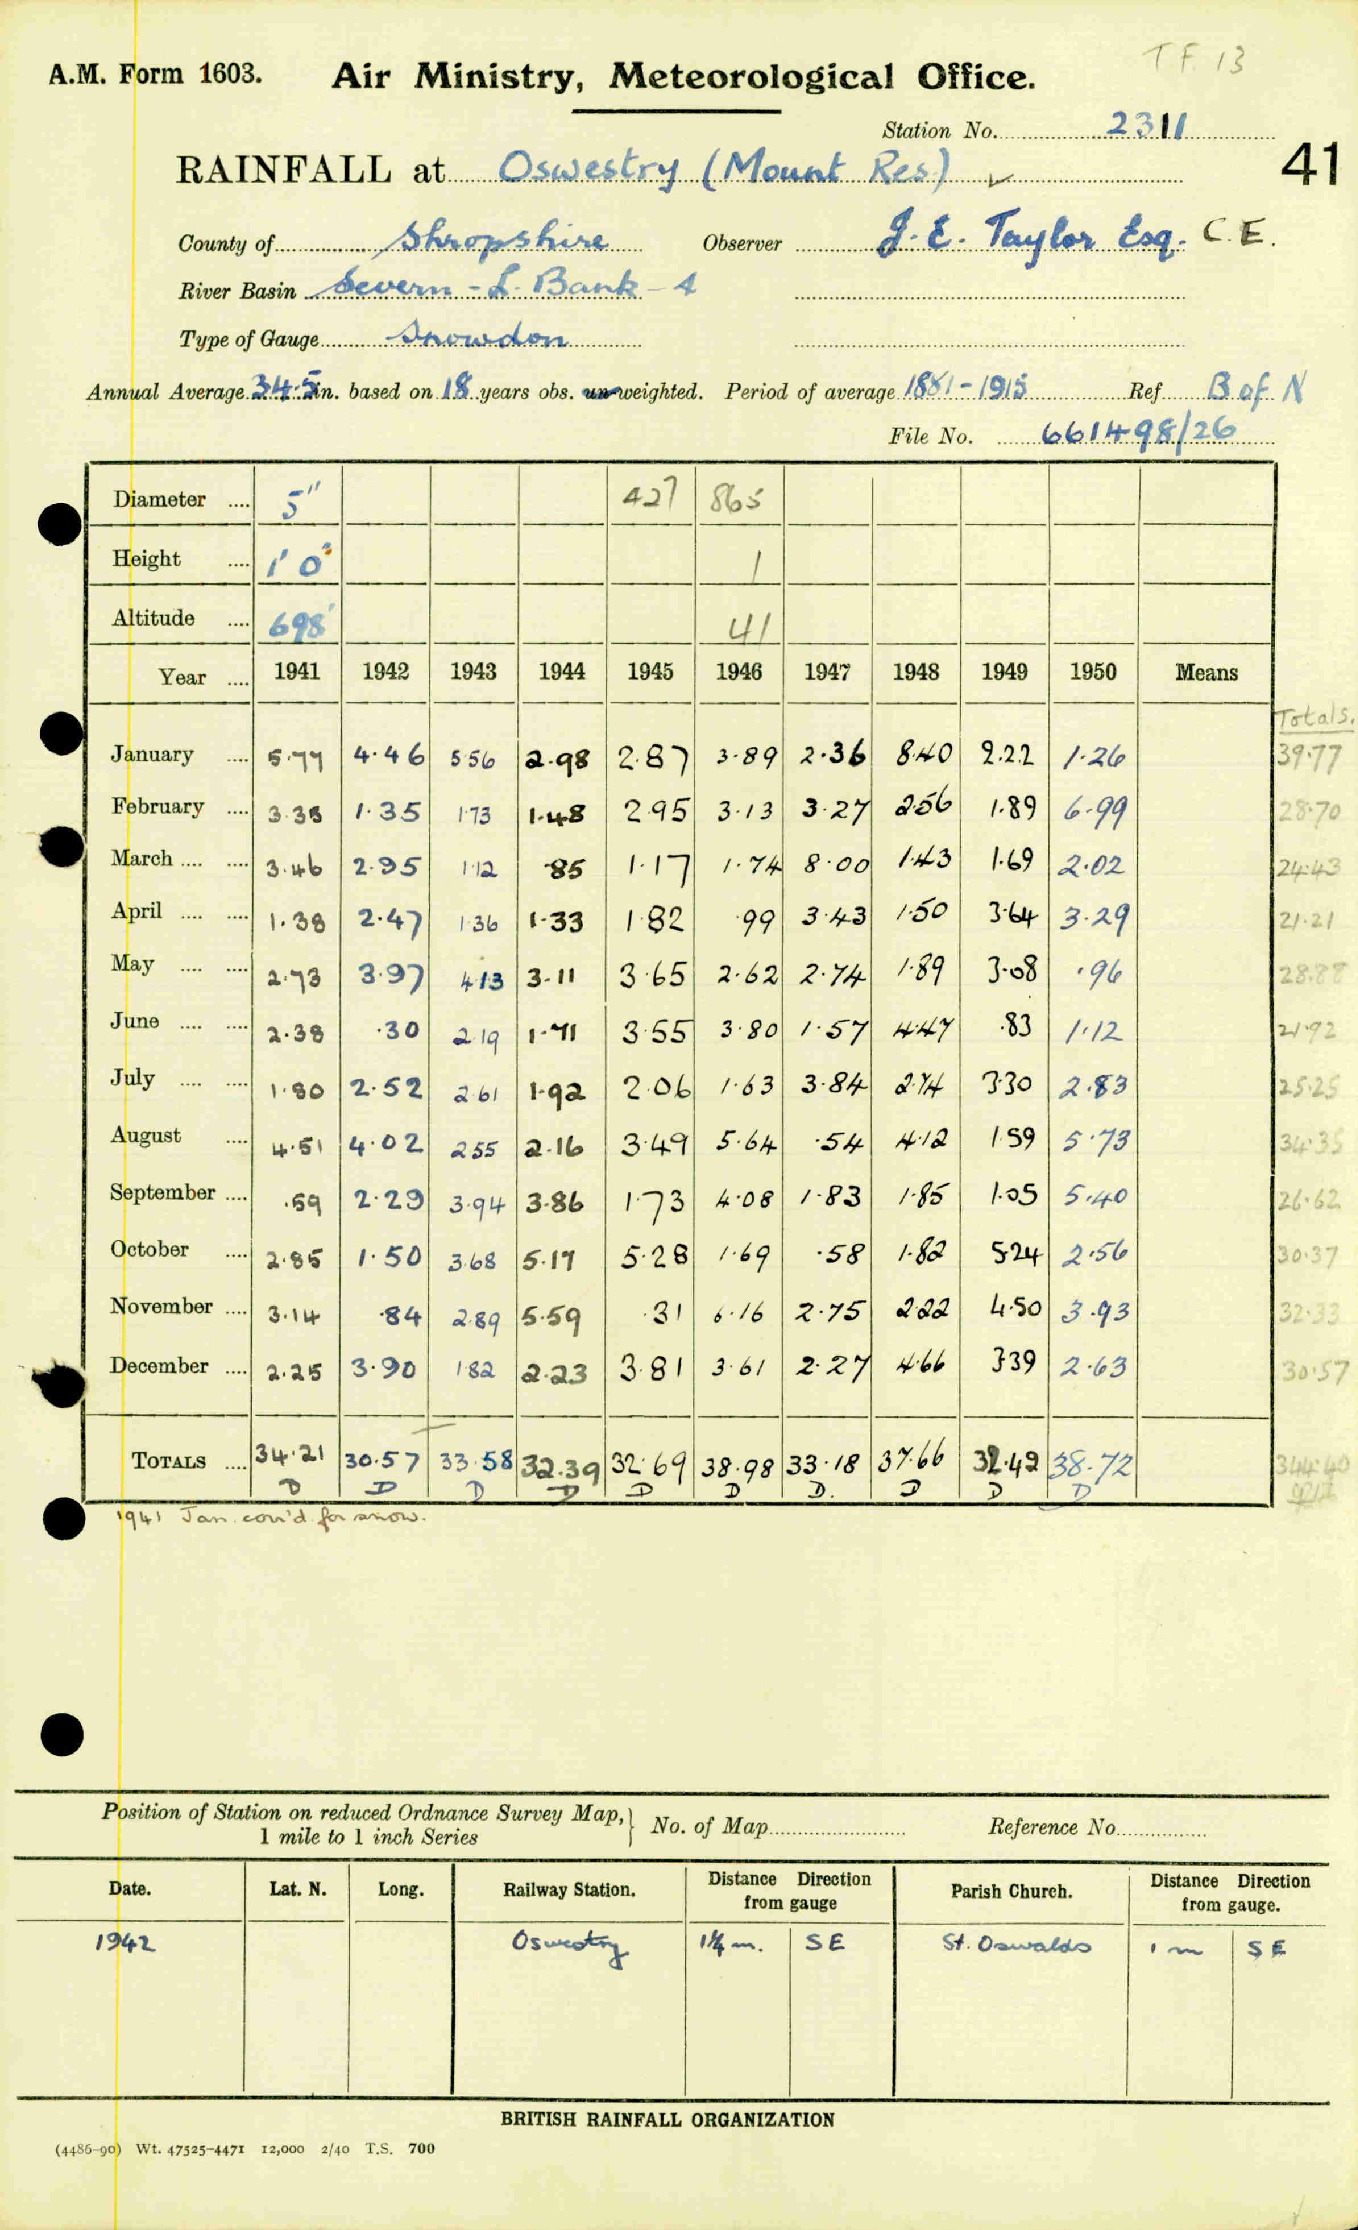 T F. 13
A.M. Form 1603. Air Ministry, Meteorological Office.
Station No. 2311
41
RAINFALL at Oswestry (Mount Res) ✓
County of Shropshire Observer J. E. Taylor Esq. C.E.
River Basin Severn - L. Bank - 4
Type of Gauge Snowdon
Annual Average 34.5 in. based on 18 years obs. un-weighted. Period of average 1881-1915 Ref. B of N
File No. 661498/26
Diameter .... 5" 427 865
Height .... 1' 0" 1
Altitude .... 698' 41
Year .... 1941 1942 1943 1944 1945 1946 1947 1948 1949 1950 Means
Totals.
January .... 5.77 4.46 5.56 2.98 2.87 3.89 2.36 8.40 2.22 1.26 39.77
February .... 3.35 1.35 1.73 1.48 2.95 3.13 3.27 2.56 1.89 6.99 28.70
March .... .... 3.46 2.95 1.12 .85 1.17 1.74 8.00 1.43 1.69 2.02 24.43
April .... .... 1.38 2.47 1.36 1.33 1.82 .99 3.43 1.50 3.64 3.29 21.21
May .... .... 2.73 3.97 4.13 3.11 3.65 2.62 2.74 1.89 3.08 .96 28.88
June .... .... 2.38 .30 2.19 1.71 3.55 3.80 1.57 4.47 .83 1.12 21.92
July .... .... 1.80 2.52 2.61 1.92 2.06 1.63 3.84 2.74 3.30 2.83 25.25
August .... 4.51 4.02 2.55 2.16 3.49 5.64 .54 4.12 1.59 5.73 34.35
September .... .59 2.29 3.94 3.86 1.73 4.08 1.83 1.85 1.05 5.40 26.62
October .... 2.85 1.50 3.68 5.17 5.28 1.69 .58 1.82 5.24 2.56 30.37
November .... 3.14 .84 2.89 5.59 .31 6.16 2.75 2.22 4.50 3.93 32.33
December .... 2.25 3.90 1.82 2.23 3.81 3.61 2.27 4.66 3.39 2.63 30.57
TOTALS .... 34.21 30.57 33.58 32.39 32.69 38.98 33.18 37.66 32.42 38.72 344.40
D D D D D D D. D D D
1941 Jan. corr'd for snow.
Position of Station on reduced Ordnance Survey Map, } No. of Map Reference No.
1 mile to 1 inch Series
Date. Lat. N. Long. Railway Station. Distance Direction from gauge Parish Church. Distance Direction from gauge.
1942 Oswestry 1¼ m. SE St. Oswalds 1 m SE
BRITISH RAINFALL ORGANIZATION
(4486-90) Wt. 47525-4471 12,000 2/40 T.S. 700